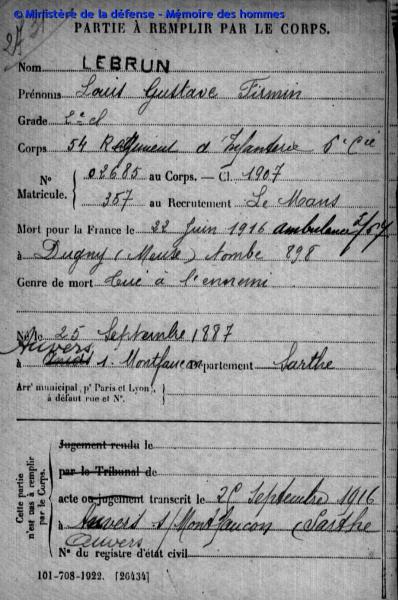 © Ministère de la défense - Mémoire des hommes
PARTIE À REMPLIR PAR LE CORPS.
Nom LEBRUN
Prénoms Louis Gustave Firmin
Grade 2e cl
Corps 54 Régiment d'Infanterie 6e Cie
N° 02685 au Corps. — Cl. 1907
Matricule. 357 au Recrutement Le Mans
Mort pour la France le 22 Juin 1916 ambulance 2/54
à Dugny (Meuse) tombe 898
Genre de mort tué à l'ennemi
Né le 25 Septembre 1887
Auvers
à s. Montfaucon Département Sarthe
Arrt municipal, pr Paris et Lyon,
à défaut rue et N°.
Cette partie n'est pas à remplir par le Corps.
Jugement rendu le
par le Tribunal de
acte ou jugement transcrit le 26 Septembre 1916
à Auvers s/Montfaucon (Sarthe
Auvers
N° du registre d'état civil
101-708-1922. [26434]